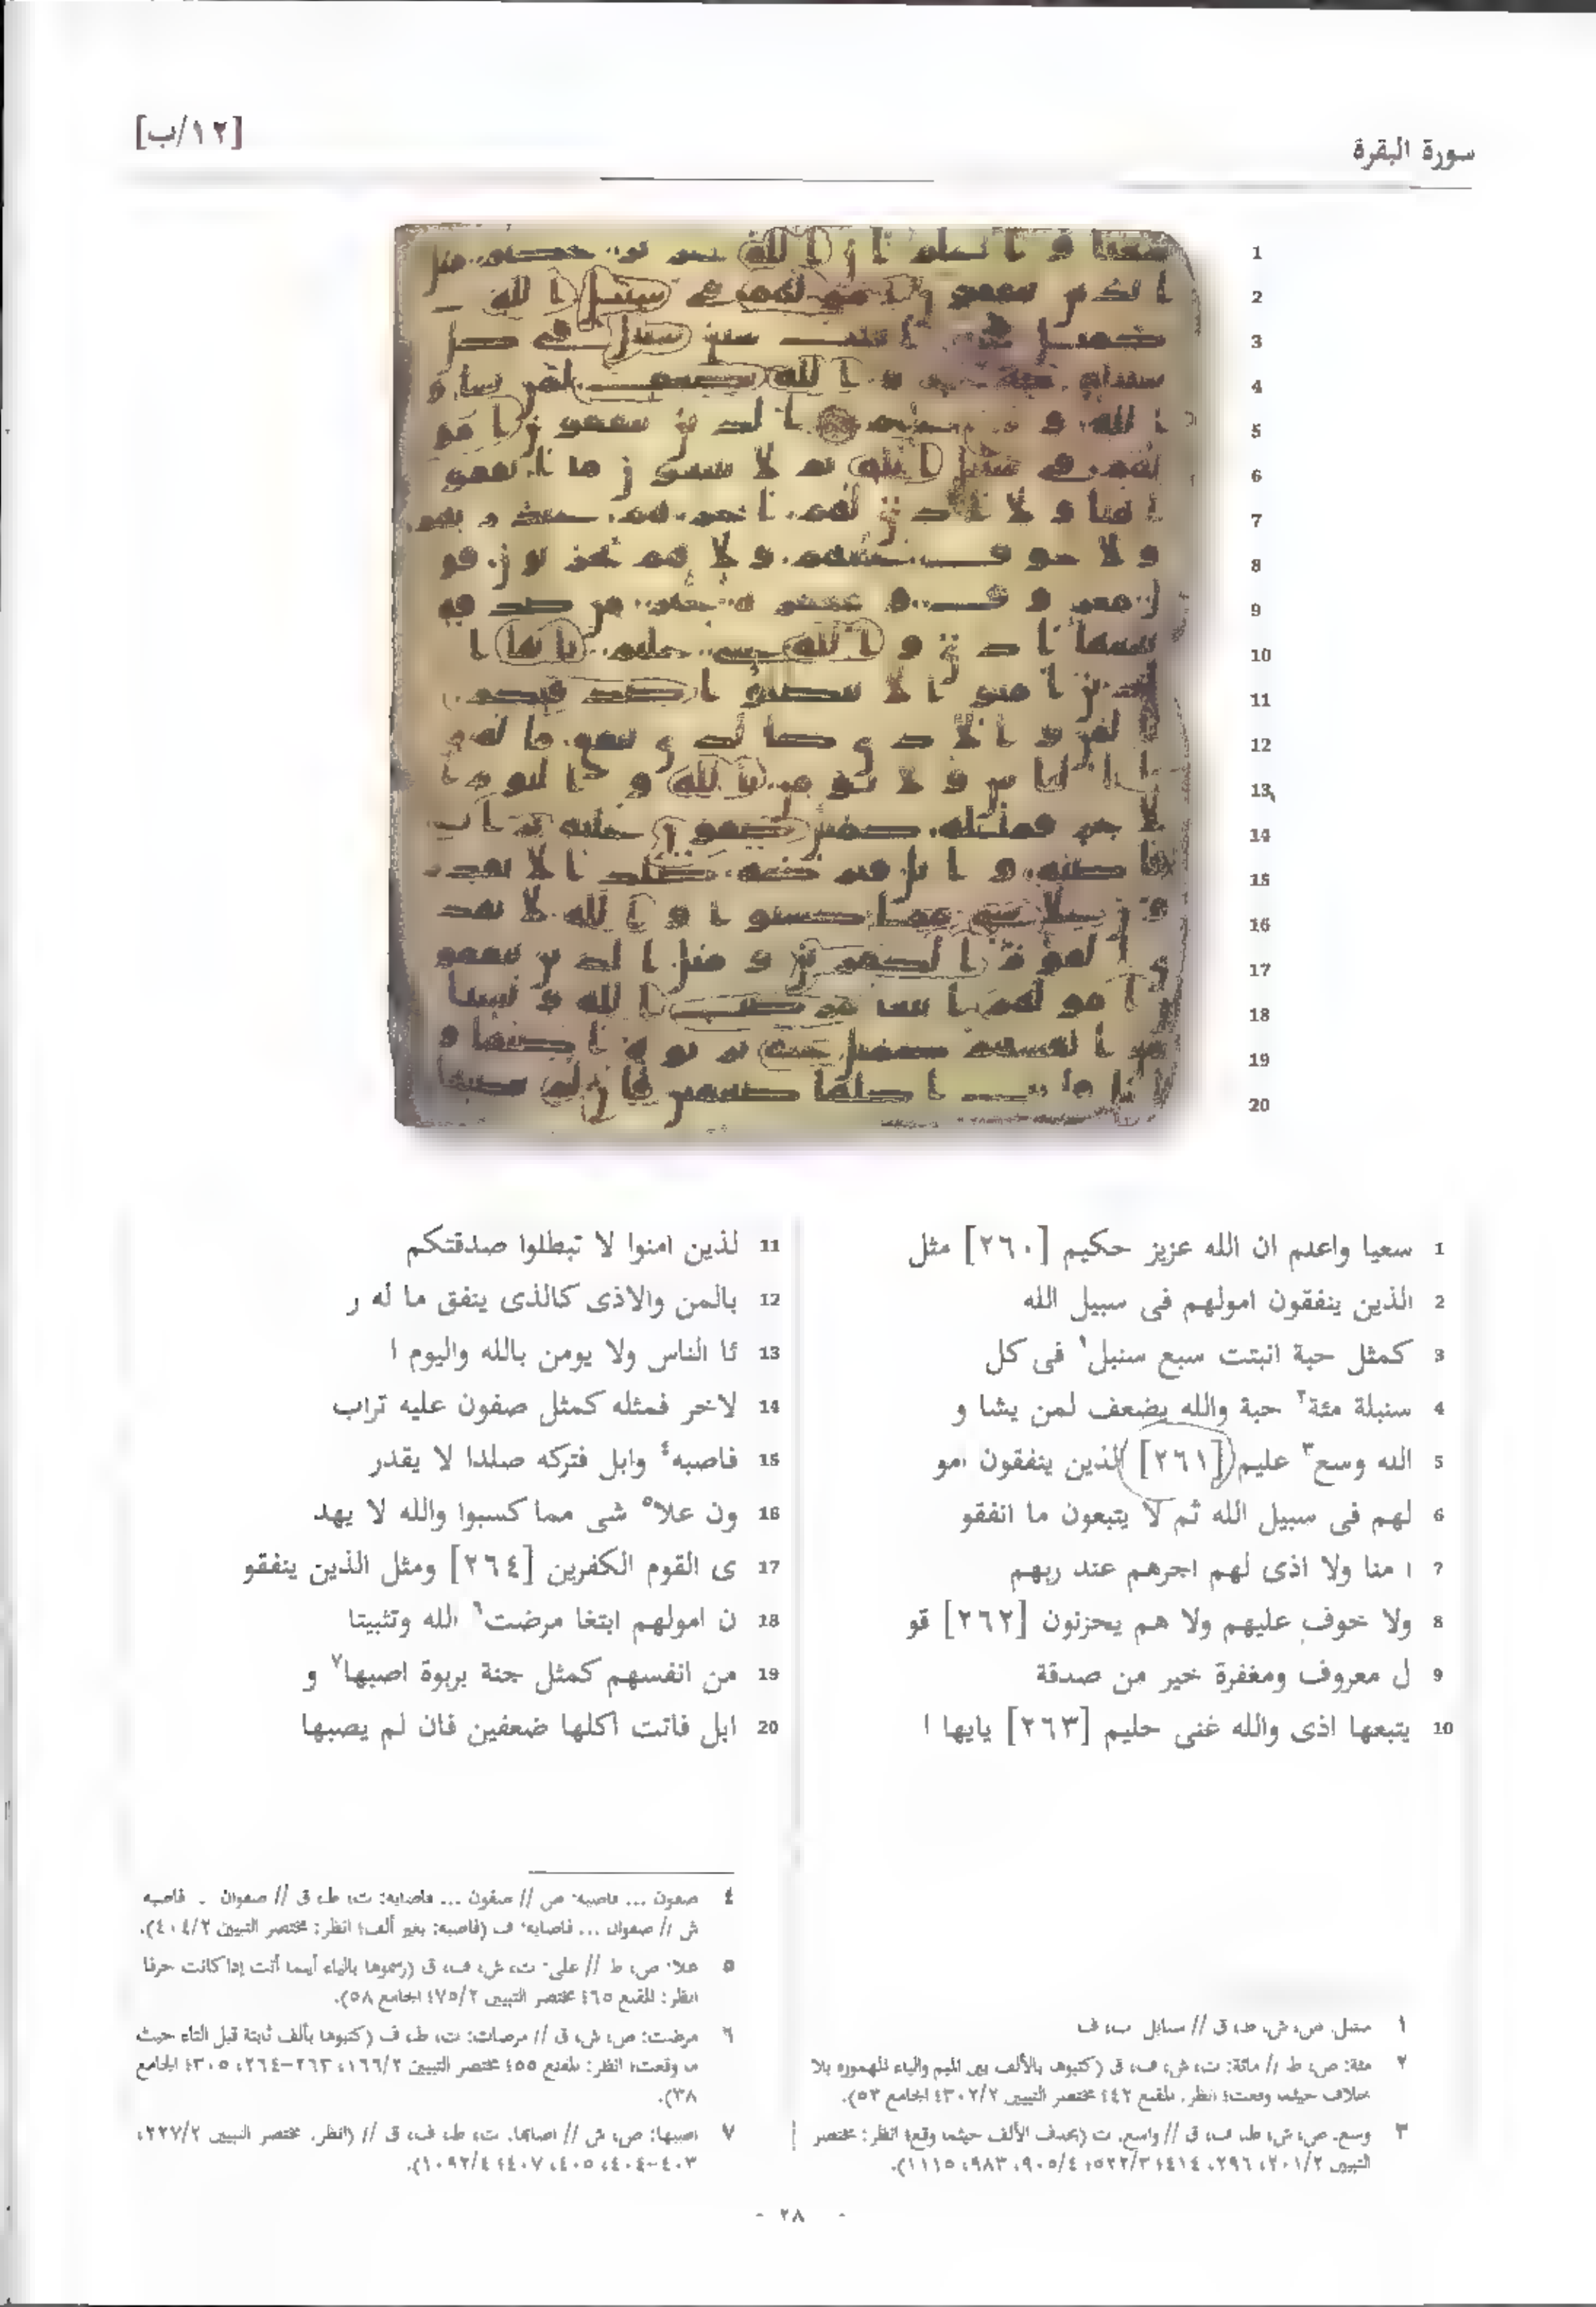 [١٢/ب]
سورة البقرة
1 سعيا واعلم ان الله عزيز حكيم [٢٦٠] مثل
2 الذين ينفقون امولهم فى سبيل الله
3 كمثل حبة انبتت سبع سنبل١ فى كل
4 سنبلة مئة٢ حبة والله يضعف لمن يشا و
5 الله وسع٣ عليم [٢٦١] الذين ينفقون امو
6 لهم فى سبيل الله ثم لا يتبعون ما انفقو
7 ا منا ولا اذى لهم اجرهم عند ربهم
8 ولا خوف عليهم ولا هم يحزنون [٢٦٢] قو
9 ل معروف ومغفرة خير من صدقة
10 يتبعها اذى والله غنى حليم [٢٦٣] يايها ا
11 لذين امنوا لا تبطلوا صدقتكم
12 بالمن والاذى كالذى ينفق ما له ر
13 ئا الناس ولا يومن بالله واليوم ا
14 لاخر فمثله كمثل صفون عليه تراب
15 فاصبه٤ وابل فتركه صلدا لا يقدر
16 ون علا٥ شى مما كسبوا والله لا يهد
17 ى القوم الكفرين [٢٦٤] ومثل الذين ينفقو
18 ن امولهم ابتغا مرضت٦ الله وتثبيتا
19 من انفسهم كمثل جنة بربوة اصبها٧ و
20 ابل فاتت اكلها ضعفين فان لم يصبها
١ سنبل: ص، ش، ط، ق // سنابل: ت، ف
٢ مئة: ص، ط // مائة: ت، ش، ف، ق (كتبوها بالألف بين الميم والياء المهموزة بلا
خلاف حيثما وقعت؛ انظر: المقنع ٤٤٢؛ مختصر التبيين ٣٠٢/٢؛ الجامع ٥٣).
٣ وسع: ص، ش، ط، ف، ق // واسع: ت (بحذف الألف حيثما وقع؛ انظر: مختصر
التبيين ٢٠١/٢، ٢٩٦، ٤١٤؛ ٥٢٢/٣؛ ٩٠٥/٤، ٩٨٣، ١١١٥).
٤ صفون ... فاصبه: ص // صفون ... فاصابه: ت، ط، ق // صفوان ... فاصبه
ش // صفوان ... فاصابه: ف (فاصبه: بغير ألف؛ انظر: مختصر التبيين ٤٠٤/٢).
٥ علا: ص، ط // على: ت، ش، ف، ق (رسموها بالياء أينما أتت إذا كانت حرفا
انظر: المقنع ٤٦٥؛ مختصر التبيين ٧٥/٢؛ الجامع ٥٨).
٦ مرضت: ص، ش، ق // مرضات: ت، ط، ف (كتبوها بألف ثابتة قبل التاء حيث
ما وقعت؛ انظر: المقنع ٤٥٥؛ مختصر التبيين ١٦٦/٢، ٢٦٣-٢٦٤، ٣٠٥؛ الجامع
٣٨).
٧ اصبها: ص، ش // اصابها: ت، ط، ف، ق // (انظر: مختصر التبيين ٢٢٧/٢،
٤٠٣-٤٠٤، ٤٠٥، ٤٠٧؛ ١٠٩٢/٤).
- ٢٨ -